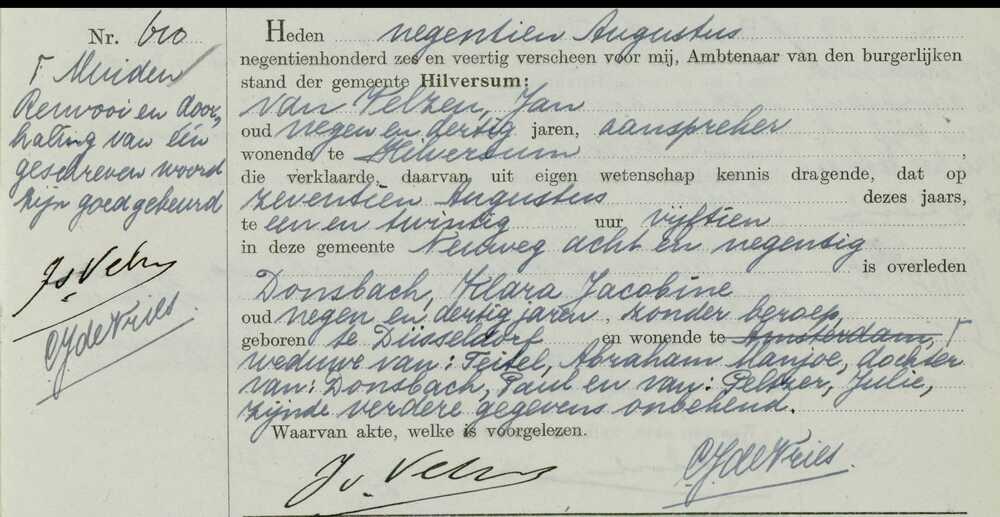 Nr. 610
Γ Muiden
Renvooi en door-
haling van één
geschreven woord
zijn goedgekeurd
Jv Velzen
CJ de Vries
Heden negentien Augustus
negentienhonderd zes en veertig verscheen voor mij, Ambtenaar van den burgerlijken
stand der gemeente Hilversum:
van Velzen, Jan
oud negen en dertig jaren, aanspreker
wonende te Hilversum ,
die verklaarde, daarvan uit eigen wetenschap kennis dragende, dat op
zeventien Augustus dezes jaars,
te een en twintig uur vijftien
in deze gemeente Neuweg acht en negentig
is overleden
Donsbach, Klara Jacobine
oud negen en dertig jaren, zonder beroep,
geboren te Düsseldorf en wonende te Amsterdam, Γ
weduwe van: Teitel, Abraham Manjoe, dochter
van: Donsbach, Paul en van: Pelzer, Julie,
zijnde verdere gegevens onbekend.
Waarvan akte, welke is voorgelezen.
Jv Velzen
CJ de Vries.